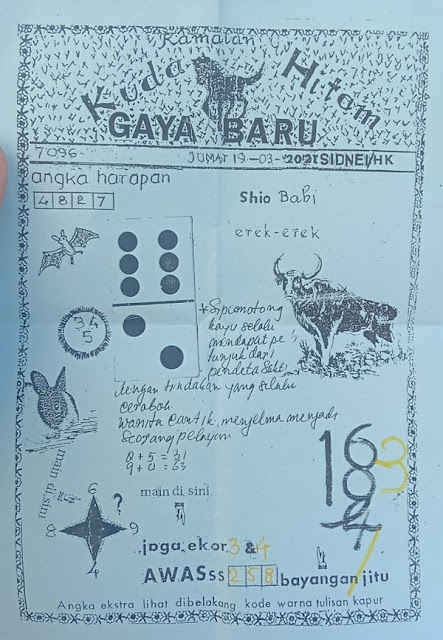 Ramalan
Kuda Hitam
GAYA BARU
7096
JUMAT 19-03-2021 SIDNEI/HK
angka harapan
4 8 2 7
Shio Babi
erek-erek
*Sipemotong
kayu selalu
mendapat pe
tunjuk dari
pendeta
9 4
5
dengan tindakan yang selalu
ceroboh
wanita cantik menjelma menjadi
seorang pelayan
8+5=31
9+0=53
main di sini
main di sini
6
?
8
9
4
16
3
8
24
7
jpga ekor 3 & 4
AWASss 2 5 8 bayangan jitu
Angka ekstra lihat dibelakang kode warna tulisan kapur